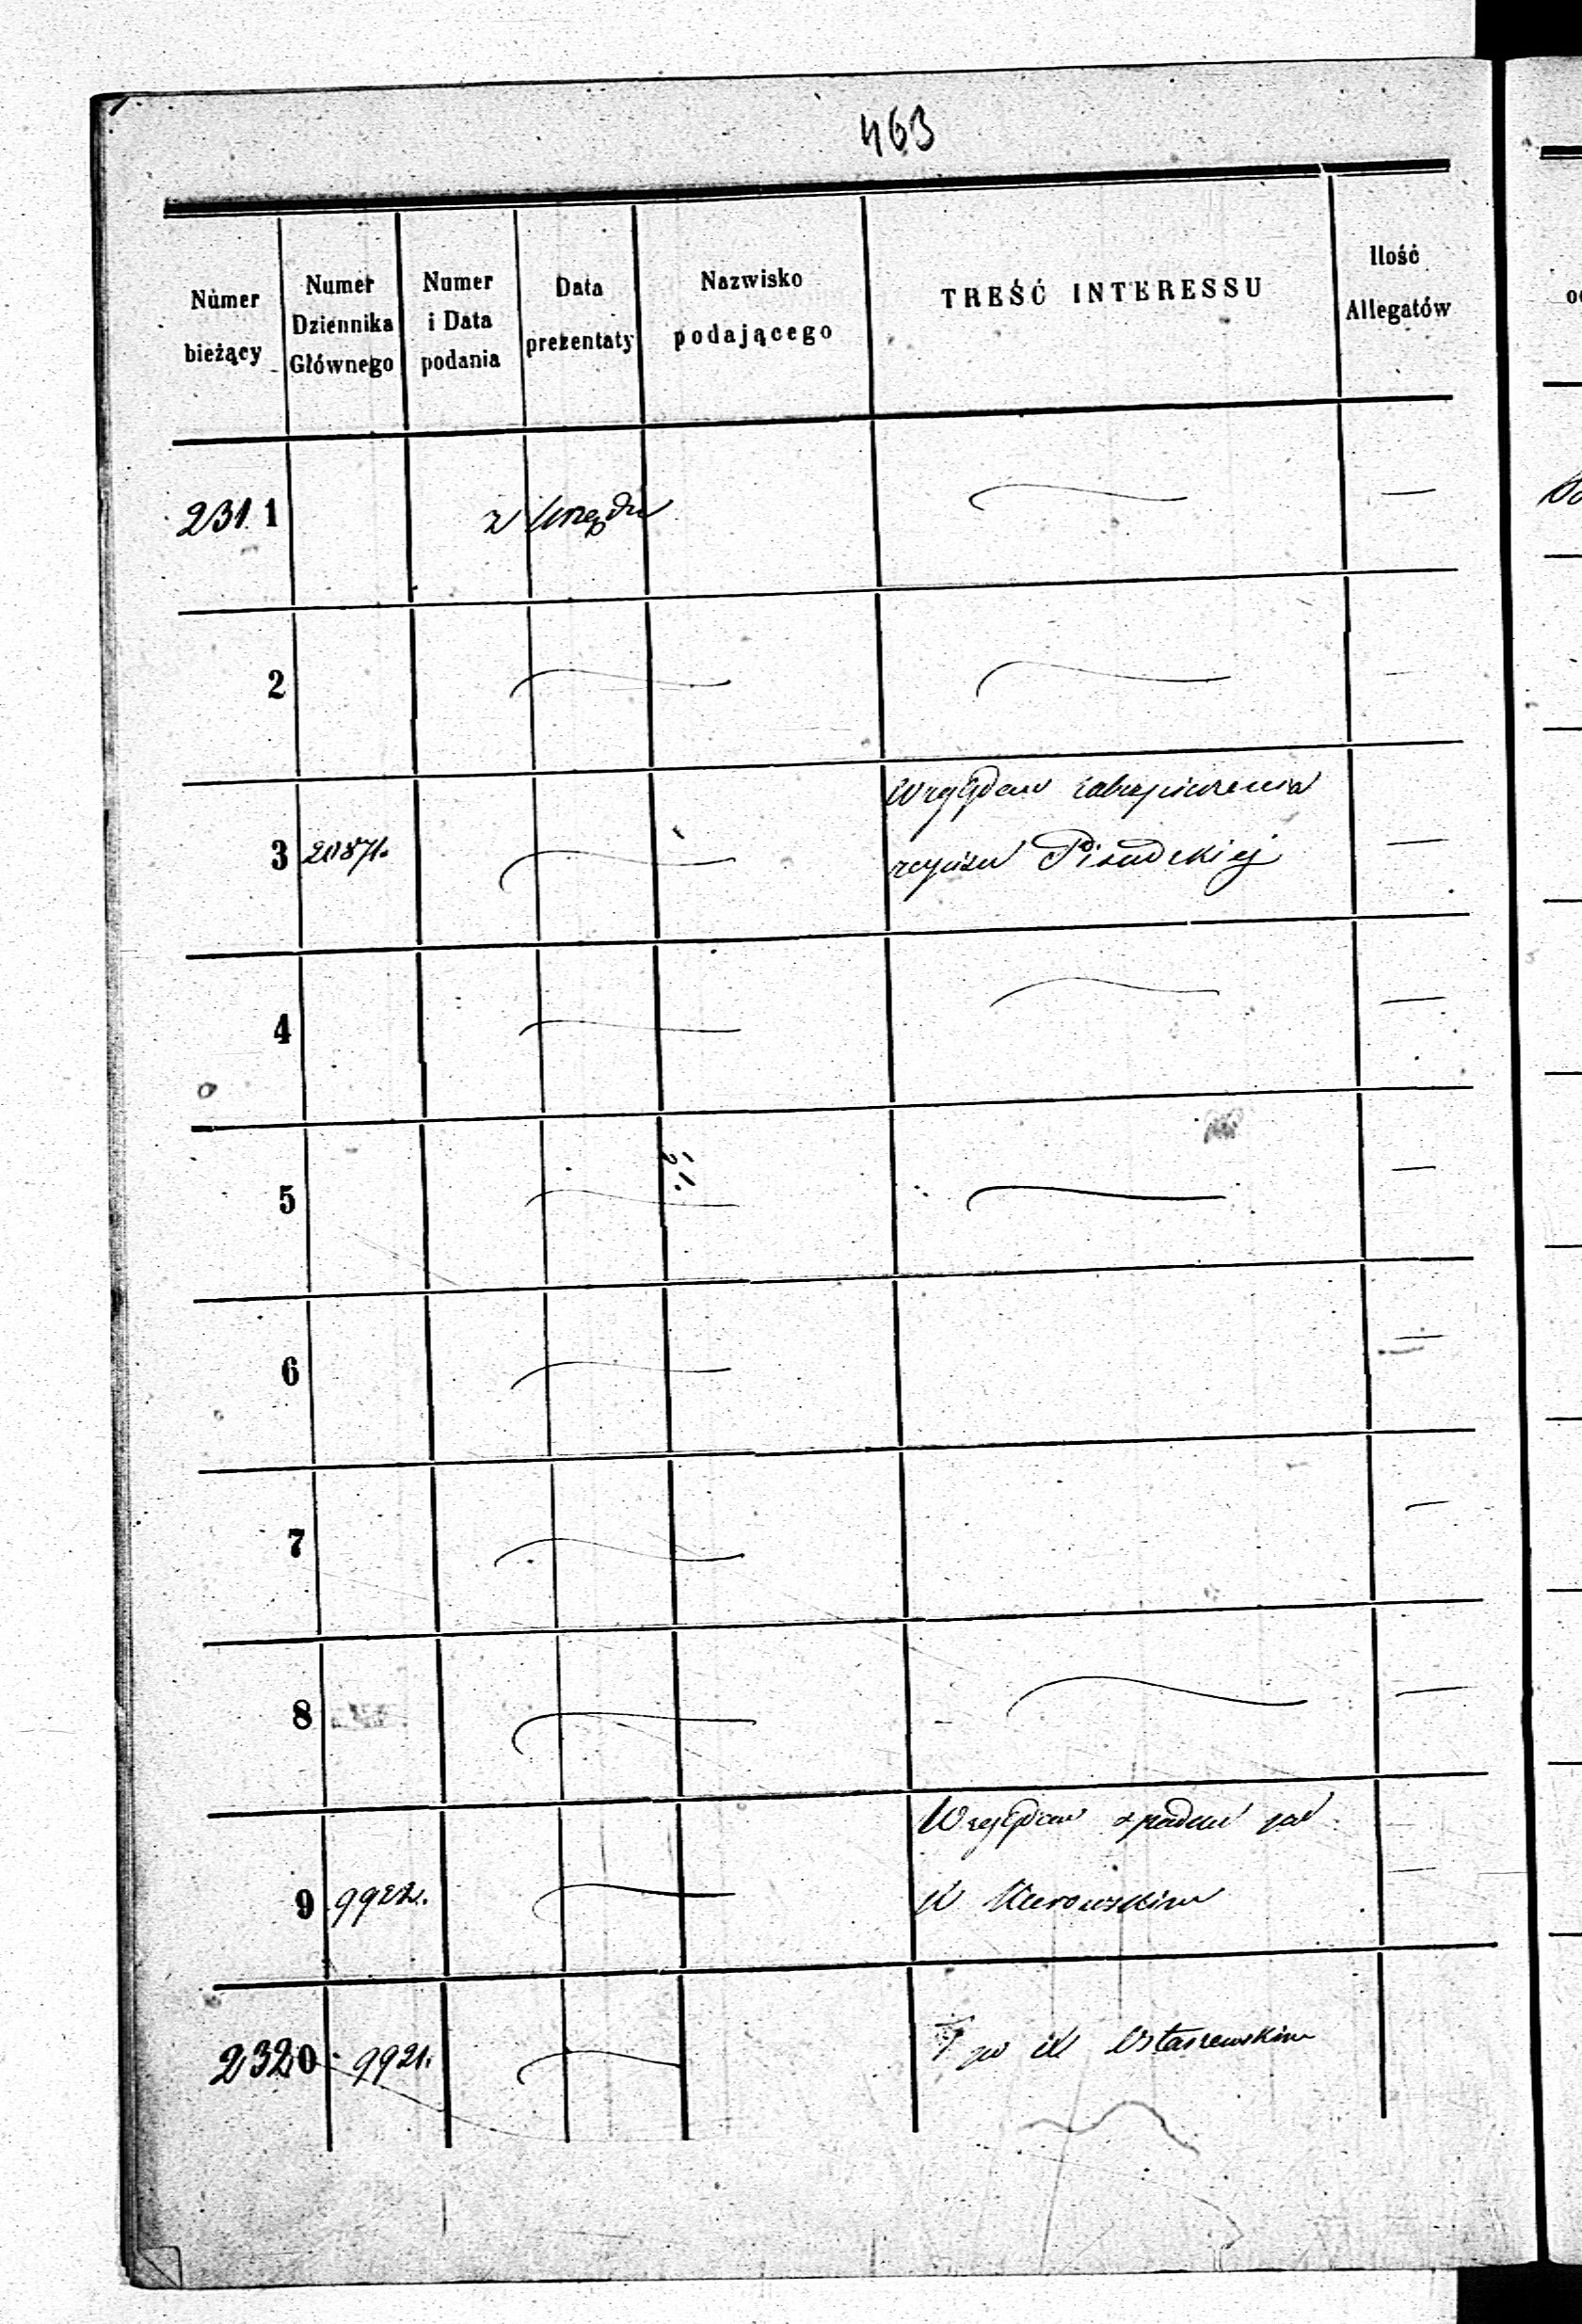 463
Numer bieżący
Numer Dziennika Głównego
Numer i Data podania
Data prezentaty
Nazwisko podającego
TREŚĆ INTERESSU
Ilość Allegatów
2311 z Urzędu
2
Względem
3 20871. Pisudzkiej
4
5
6
7
8
Względem
9 9922. Kurowskim
2320 9921. Ostaszewskim